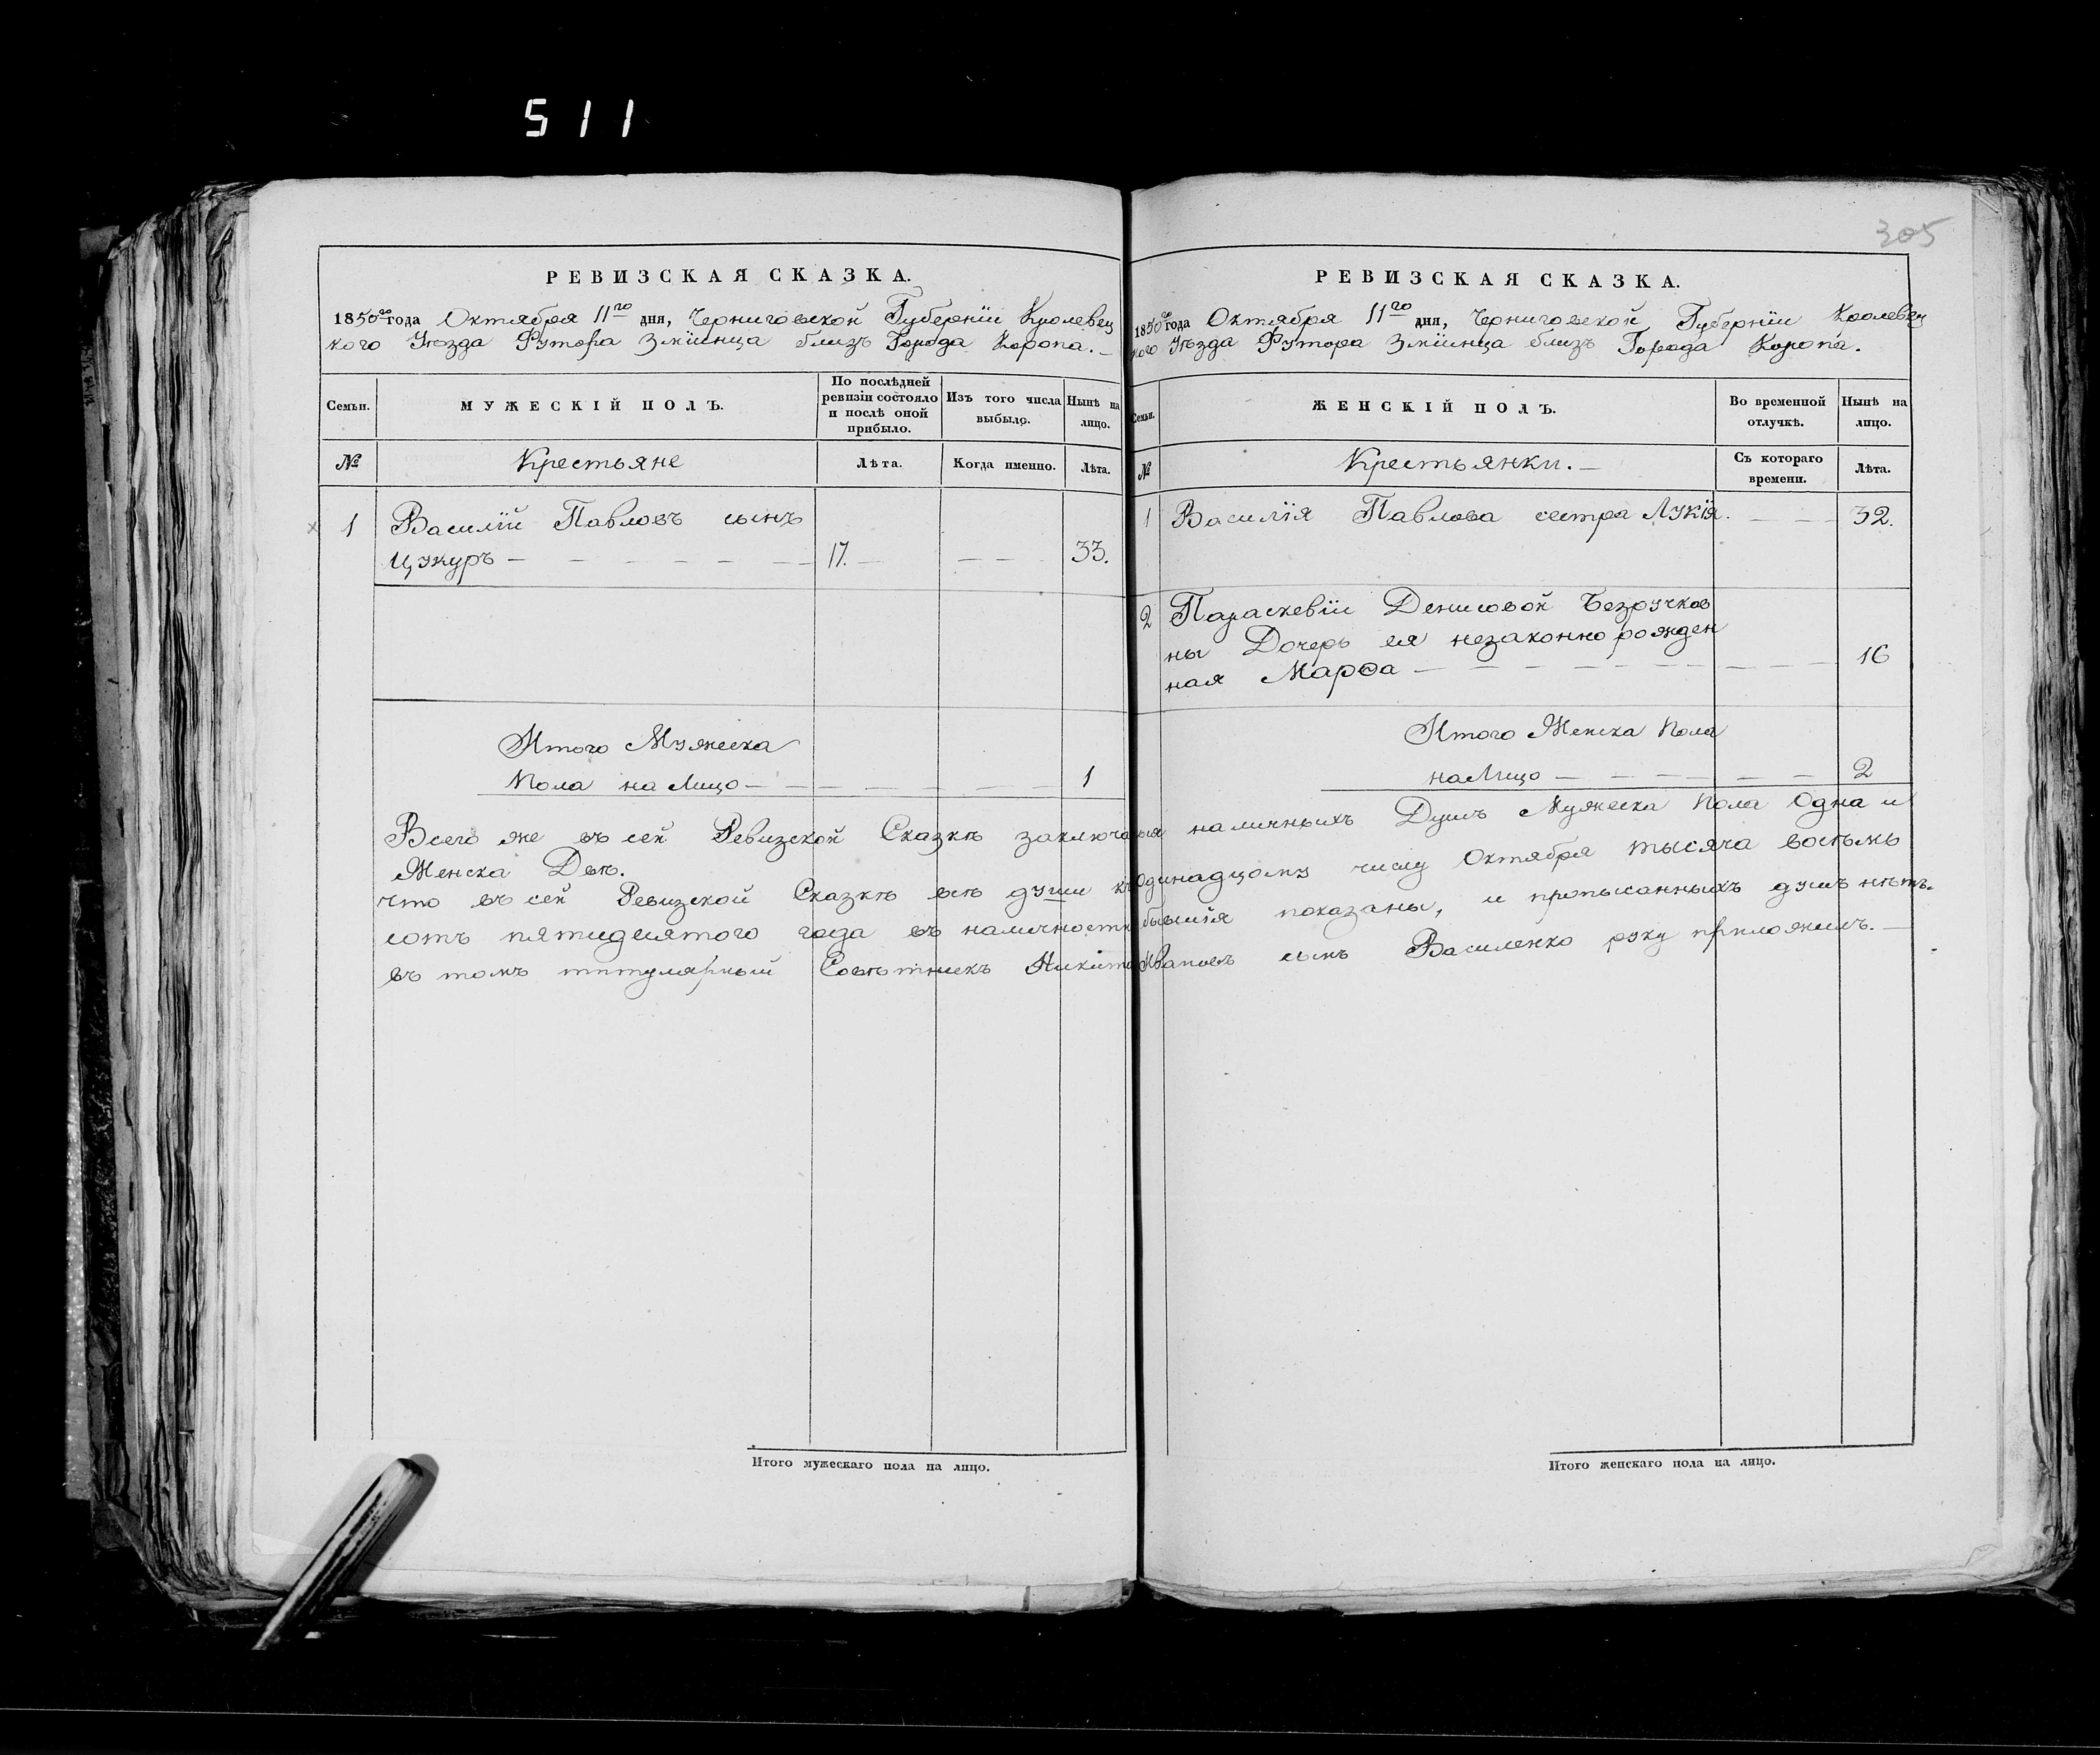 511
305
РЕВИЗСКАЯ СКАЗКА.
1850го года Октября 11го дня, Черниговской Губернїи Кролевец
кого Уѣзда Футора Змїинца близъ Города Коропа.
Семьи.
МУЖЕСКІЙ ПОЛЪ.
По послѣдней
ревизіи состояло
и послѣ оной
прибыло.
Изъ того числа
выбыло.
Нынѣ на
лицо.
№
Крестьяне
Лѣта.
Когда именно.
Лѣта.
1 Василїй Павловъ сынъ
Цукуръ — 17. — 33.
Итого Мужеска
Пола на Лицо — 1
РЕВИЗСКАЯ СКАЗКА.
1850го года Октября 11го дня, Черниговской Губернїи Кролевец
кого Уѣзда Футора Змїинца близъ Города Коропа.
Семьи.
ЖЕНСКІЙ ПОЛЪ.
Во временной
отлучкѣ.
Нынѣ на
лицо.
№
Крестьянки. —
Съ котораго
времени.
Лѣта.
1 Василїя Павлова сестра Лукїя. — 32.
2 Параскевїи Денисовой Безручков
ны Дочерь ея незаконно рожден
ная Марѳа — 16
Итого Женска Пола
на Лицо — 2
Всего же въ сей Ревизской Сказкѣ заключается наличныхъ Душъ Мужеска Пола Одна и
Женска Двѣ.
что въ сей Ревизской Сказкѣ всѣ души къ Одинадцатому числу Октября тысяча восѣмь
сотъ пятидесятого года въ наличности бывшїя показаны, и прописанныхъ душъ нѣтъ.
въ томъ титулярный Совѣтникъ Никита Ивановъ сынъ Василенко руку приложилъ. —
Итого мужескаго пола на лицо.
Итого женскаго пола на лицо.